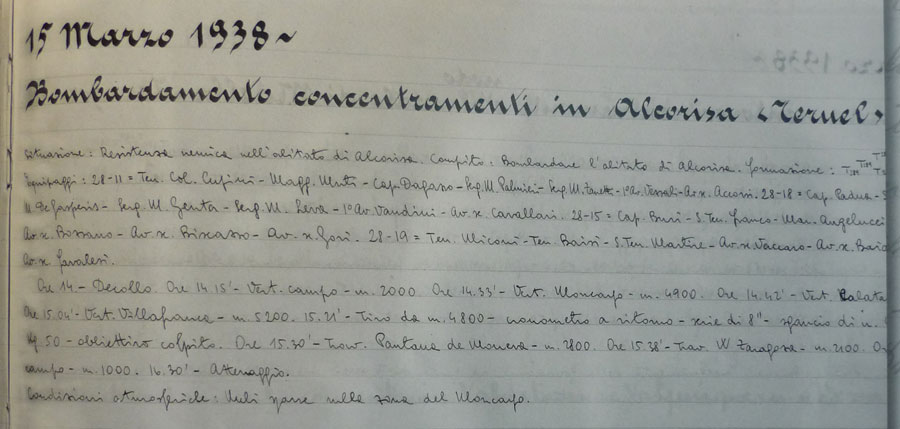 15 Marzo 1938~
Bombardamento concentramenti in Alcorisa <Teruel>
Situazione: Resistenza nemica nell'abitato di Alcorisa. Compito: Bombardare l'abitato di Alcorisa. formazione:
Equipaggi: 28-11 = Ten. Col. Cupini - Magg. Muti - Cap. Dagasso - Serg. M. Palmieri - Serg. M. - 1° Av. - Av. x. Accosi. 28-18 = Cap. Padua -
M. De Gasperis - Serg. M. Genta - Serg. M. Leva - 1° Av. Vandini - Av. x. Cavallari. 28-15 = Cap. Buri - S. Ten. Franco - Mar. Angelucci
Av. x. Bossano - Av. x. Biscasso - Av. x. Gori. 28-19 = Ten. Miconi - Ten. Baisi - S. Ten. Martire - Av. x. Vaccaro - Av. x.
Av. x.
Ore 14 - Decollo. Ore 14.15' - Vert. campo - m. 2000. Ore 14.33' - Vert. Moncayo - m. 4900. Ore 14.42' - Vert. Calata
Ore 15.04' - Vert. Villafranca - m. 5200. 15.21' - Tiro da m. 4800 - cronometro a ritorno - serie di 8" - sgancio di n.
Kg. 50 - obiettivo colpito. Ore 15.30' - Trav. Pantano de Moneva - m. 2800. Ore 15.38' - Trav. W Zaragoza - m. 2100.
campo - m. 1000. 16.30' - Atterraggio.
Condizioni atmosferiche: Nubi sparse sulla zona del Moncayo.